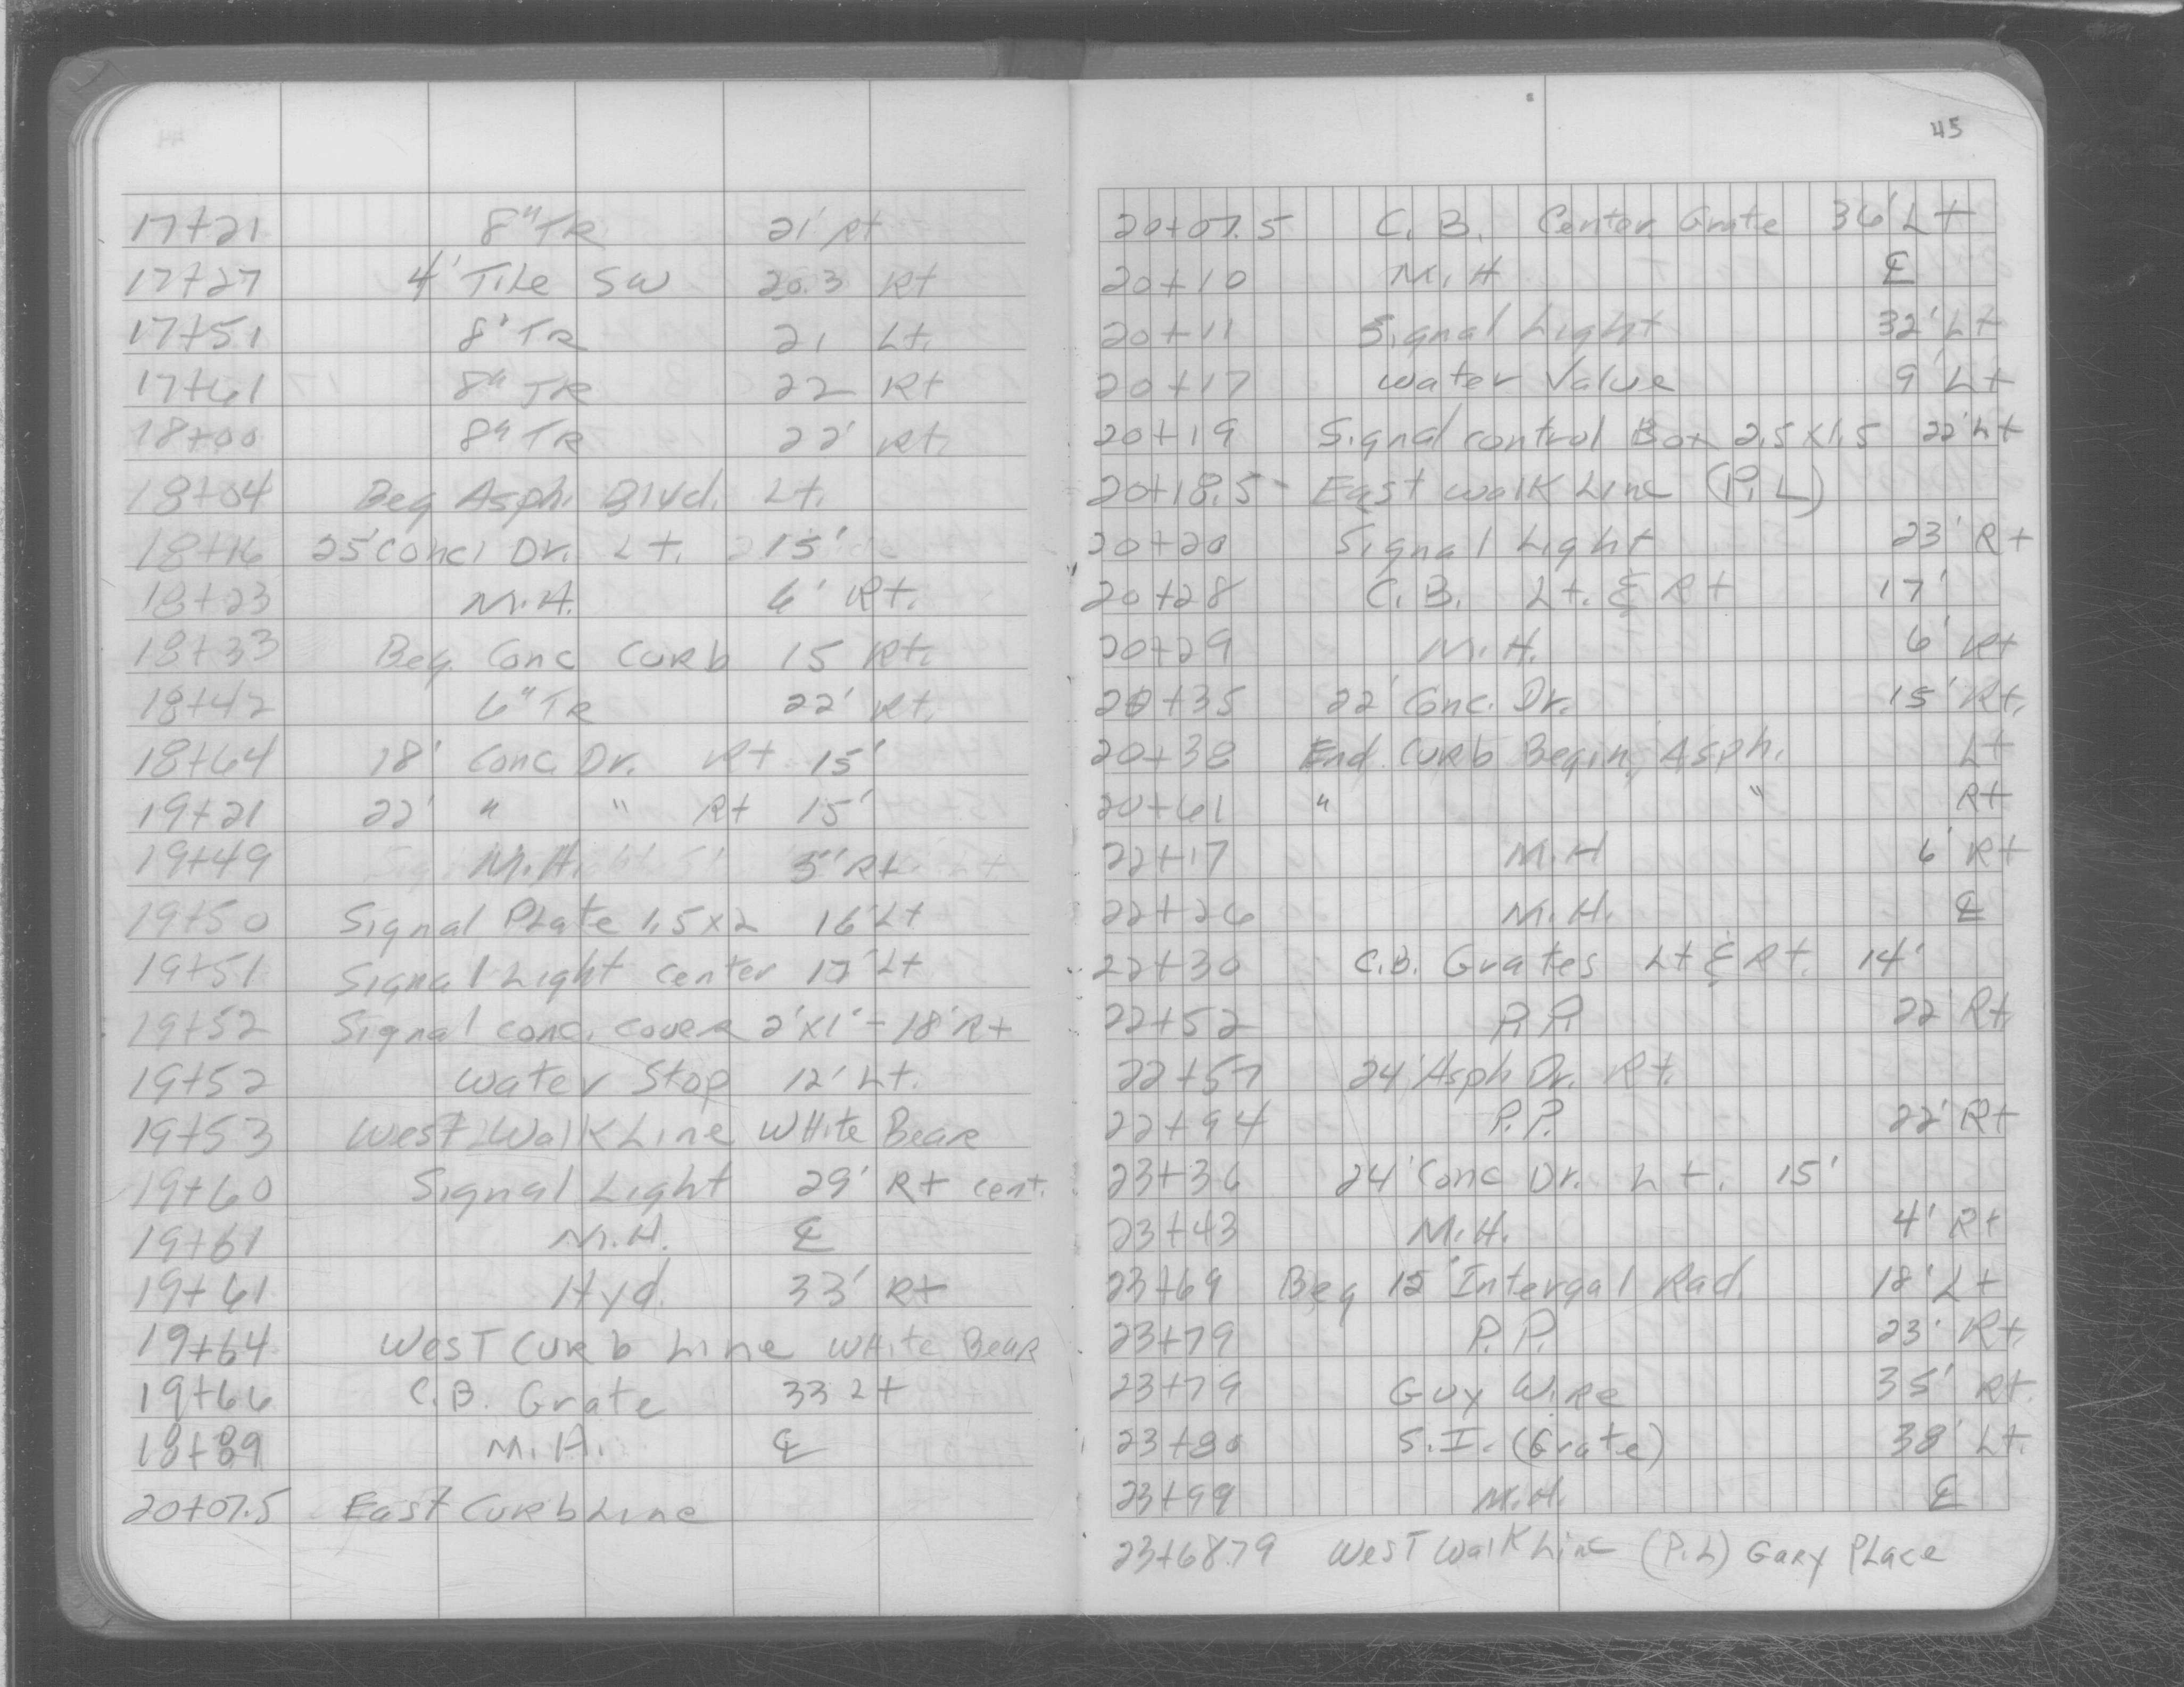 17+21 8" TR 21' Rt
17+27 4' Tile SW 20.3 Rt
17+51 8" TR 21 Lt.
17+61 8" TR 22 Rt
18+00 8" TR 22' Rt.
18+04 Beg Asph. Blvd. Lt.
18+16 25' Conc. Dr. Lt. 15'
18+23 M.H. 6' Rt.
18+33 Beg. Conc Curb 15 Rt.
18+42 6" TR 22' Rt.
18+64 18' Conc. Dr. Rt 15'
19+21 22' " " Rt 15'
19+49 M.H. 5' Rt.
19+50 Signal Plate 1.5x2 16' Lt
19+51 Signal Light center 17' Lt
19+52 Signal conc. cover 2'x1' - 18' Rt
19+52 Water Stop 12' Lt.
19+53 West Walk Line White Bear
19+60 Signal Light 29' Rt cent.
19+61 M.H. ℄
19+61 Hyd. 33' Rt
19+64 West Curb Line White Bear
19+66 C.B. Grate 33 Lt
18+89 M.H. ℄
20+07.5 East Curb Line
45
20+07.5 C.B. Center Grate 36' Lt
20+10 M.H ℄
20+11 Signal Light 32' Lt
20+17 Water Value 9' Lt
20+19 Signal control Box 2.5x1.5 22' Lt
20+18.5 - East walk Line (P.L)
20+20 Signal Light 23' Rt
20+28 C.B. Lt. & Rt 17'
20+29 M.H. 6' Rt
20+35 22' Conc. Dr. 15' Rt.
20+38 End Curb Begin Asph. Lt
20+61 " " Rt
22+17 M.H 6' Rt
22+26 M.H. ℄
22+30 C.B. Grates Lt & Rt. 14'
22+52 P.P. 22' Rt.
22+57 24' Asph Dr. Rt.
22+94 P.P. 22' Rt
23+36 24' Conc Dr. Lt. 15'
23+43 M.H. 4' Rt
23+69 Beg 15' Intergal Rad. 18' Lt
23+79 P.P. 23' Rt.
23+79 Guy Wire 35' Rt.
23+80 S.I. (Grate) 38' Lt.
23+99 M.H. ℄
23+68.79 West Walk Line (P.L) Gary Place